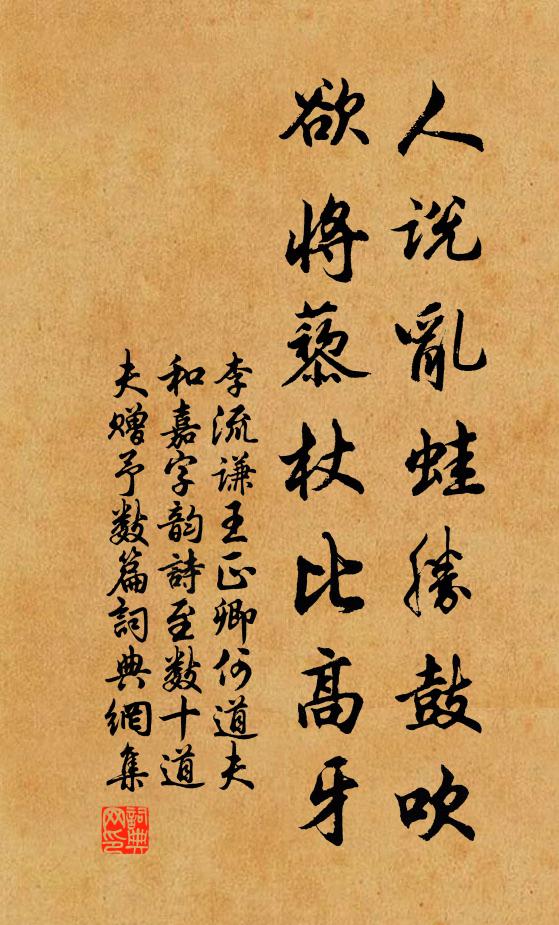 人说亂蛙勝鼓吹
欲將藜杖比高牙
李流谦王正卿何道夫
和嘉字韵詩至数十道
夫赠予数篇詞典網集
詞典网印